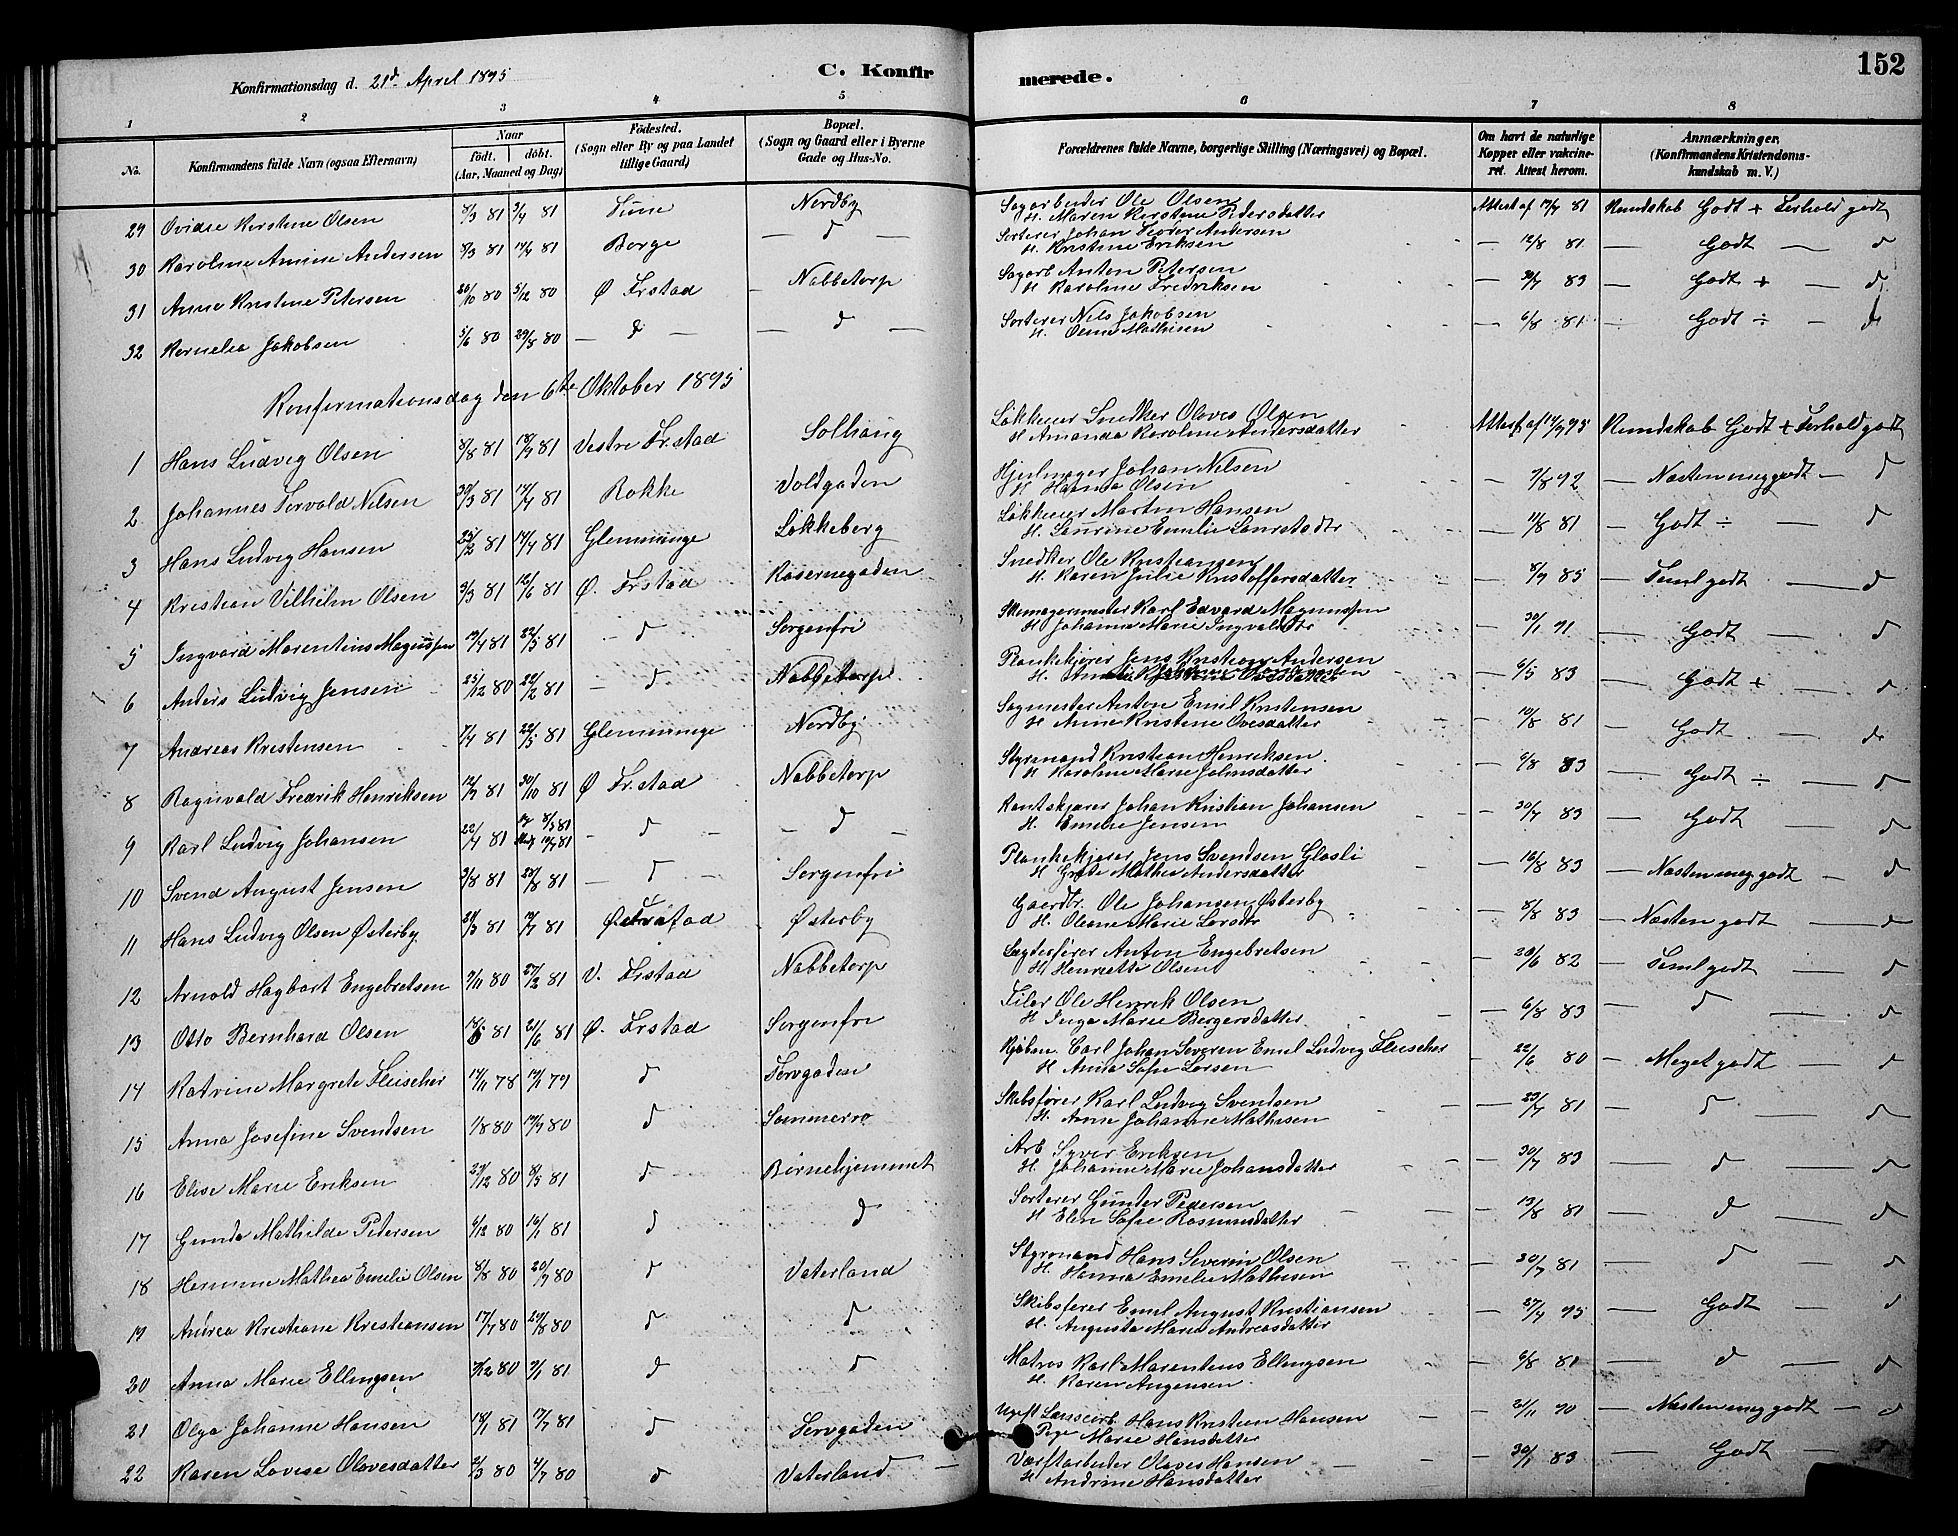 152
Konfirmationsdag d. 21d. April 1895
C. Konfirmerede.
1 2 3 4 5 6 7 8
No.
Konfirmandens fulde Navn (ogsaa Efternavn)
Naar
født. døbt.
(Aar, Maaned og Dag)
Fødested.
(Sogn eller By og paa Landet
tillige Gaard)
Bopæl.
(Sogn og Gaard eller i Byerne
Gade og Hus-No.
Forældrenes fulde Navne, borgerlige Stilling (Næringsvei) og Bopæl.
Om havt de naturlige
Kopper eller vakcine-
ret. Attest herom.
Anmærkninger,
(Konfirmandens Kristendoms-
kundskab m. V.)
29 Ovidie Kirstine Olsen 8/3 81 3/4 81 Tune Nordby Sagarbeider Ole Olsen Attest af 12/7 81 Kundskab Godt + Forhold godt
H. Maren Kirstine Pedersdatter
30 Karoline Amine Andersen 3/3 81 17/4 81 Borge — d — Sorterer Johan Teodor Andersen — 12/8 81 — Godt — d
H. Kristine Eriksen
31 Anna Kristine Petersen 20/10 80 5/12 80 Ø Frstad Nabbetorp Sagarb Anton Petersen — 30/7 83 — Godt + — d
H Karoline Fredriksen
32 Kornelia Jakobsen 5/6 80 29/8 80 — d — — d — Sorterer Nils Jakobsen — 6/8 81 — Godt ÷ — d
H. Oline Mathisen
Konfirmationsdag den 6te Oktober 1895
1 Hans Ludvig Olsen 8/8 81 18/9 81 Vestre Frstad Solhaug Løkkeeier Snedker Olaves Olsen Attest af 14/9 95 Kundskab Godt + Forhold godt
H Amanda Karoline Andersdatter
2 Johannes Torvald Nilsen 30/3 81 17/4 81 Rokke Voldgaden Hjulmager Johan Nilsen — 9/8 92 — Næsten meg godt — d
H. Hanna Olsen
3 Hans Ludvig Hansen 25/2 81 17/4 81 Glemminge Løkkeberg Løkkeeier Martin Hansen — 11/8 81 — Godt ÷ — d
H. Laurine Emelie Lauretsdtr
4 Kristian Vilhelm Olsen 3/3 81 12/6 81 Ø. Frstad Kasernegaden Snedker Ole Kristiansen — 8/9 85 — Teml godt — d
H. Karen Julie Kristoffersdatter
5 Ingvard Marentius Magnussen 19/4 81 22/5 81 d Sorgenfri Skomagermester Karl Edvard Magnussen — 30/1 91 — Godt — d
H Johanne Marie Ingvaldsdtr
6 Anders Ludvig Jensen 25/12 80 22/2 81 — d Nabbetorp Plankekjører Jens Kristian Andersen — 6/5 83 — Godt + — d
7 Andreas Kristensen 7/4 81 22/5 81 Glemminge Nordby Sagmester Anton Emil Kristensen — 19/8 81 — Godt — do
H Anne Kristine Ovesdatter
8 Ragnvald Fredrik Henriksen 12/9 81 30/10 81 Ø Fr.stad Nabbetorp Styrmand Kristian Henriksen — 6/8 83 — Godt ÷ — d
H Karoline Marie Johnsdatter
9 Karl Ludvig Johansen 22/4 81 — d — — d — Kantskjærer Johan Kristian Johansen — 30/7 83 — Godt — d
H. Emelie Jensen
10 Svend August Jensen 3/8 81 28/8 81 — d Sorgenfri Plankekjører Jens Svendsen Glosli — 16/8 83 — Næsten meg godt — d
H Grete Mathea Andersdatter
11 Hans Ludvig Olsen Østerby 29/3 81 10/7 81 Ø Frstad Østerby Gaardbr. Ole Johansen Østerby — 8/8 83 — Næsten godt — d
H. Oleane Marie Larsdtr
12 Arnold Hagbart Engebretsen 9/11 80 27/2 81 V. Frstad Nabbetorp Lægterfører Anton Engebretsen — 20/6 82 — Teml godt — d
H Henriette Olsen
13 Otto Bernhard Olsen 18/5 81 21/6 81 Ø. Frstad Sorgenfri Filer Ole Henrik Olsen — 6/8 83 — d — d
H Inga Marie Bergersdatter
14 Katrine Margrete Fleischer 14/11 78 19/1 79 d Torvgaden Kjøbm. Carl Johan Severen Emil Ludvig Fleischer — 22/6 80 — Meget godt — d
H Anna Sofie Larsen
15 Anna Josefine Svendsen 1/8 80 19/9 80 d Sommerro Skibsfører Karl Ludvig Svendsen — 23/7 81 — d — d
H. Anne Johanne Mathisen
16 Elise Marie Eriksen 29/12 80 8/5 81 d Børnehjemmet Arb Syver Eriksen — 30/7 83 — d — d
H. Johanne Marie Johansdatter
17 Gunda Mathilde Petersen 4/12 80 16/1 81 d d Sorterer Gunder Pedersen — 13/8 81 — d — d
H Elen Sofie Rasmusdatter
18 Hermine Mathea Emelie Olsen 8/8 80 20/9 80 d Vaterland Styrmand Hans Severin Olsen — 30/7 81 — d — d
H. Hanna Emelie Mathisen
19 Andrea Kristiane Kristiansen 17/7 80 29/8 80 d d Skibsfører Emil August Kristiansen — 27/4 95 — Godt — d
H. Augusta Marie Andreasdatter
20 Anna Marie Ellingsen 3/12 80 9/1 81 d d Matros Karl Marentius Ellingsen — 6/8 81 — d — d
H. Karen Augensen
21 Olga Johanne Hansen 18/1 81 17/7 81 d Torvgaden Ugift Hans Kristian Hansen — 21/11 90 — Næsten meg godt — d
Pige Marie Hansdatter
22 Karen Lovise Olavesdatter 2/3 80 4/7 80 d Vaterland — Værftarbeider Olaves Hansen — 30/1 83 — Godt —
H Andrine Hansdatter